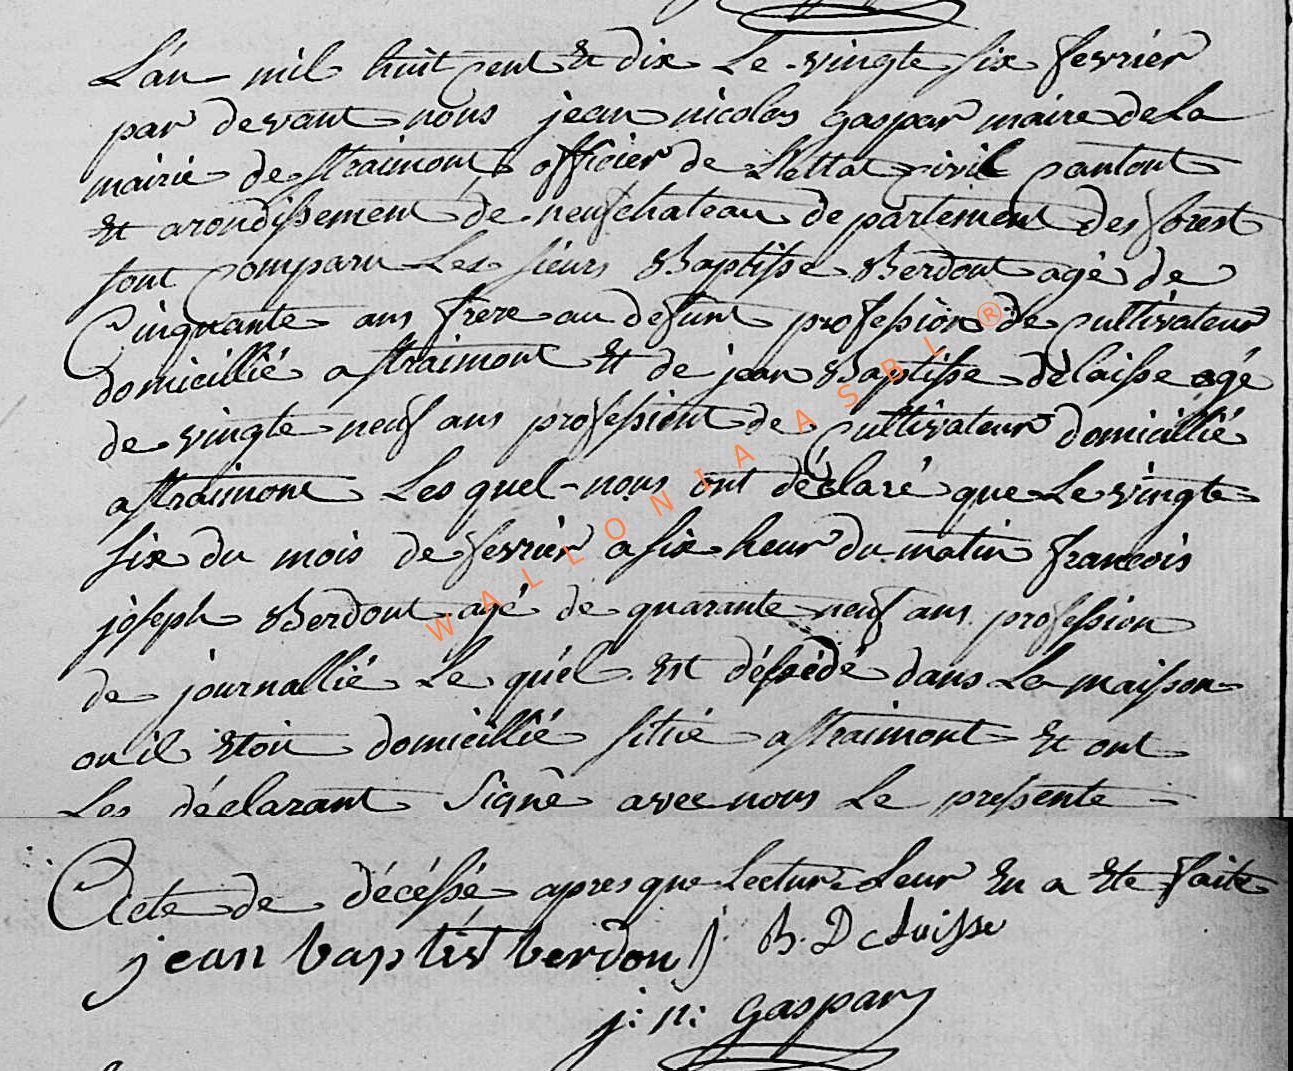 L'an mil huit cent et dix Le vingte six fevrier
par devant nous jean nicolas gaspar maire de La
mairie de straimont officier de L'ettat civil cantont
et arondissement de neufchateau departement des forest
sont comparu Les sieurs Baptisse Berdont agé de
Cinquante ans frere au defunt profession de cultivateur
domicillié a straimont et de jean Baptisse delaisse agé
de vingte neuf ans professiont de cultivateur domicillié
a straimont Les quel nous ont déclaré que Le vingte
six du mois de fevrier a six heur du matin francois
joseph Berdont agé de quarante neuf ans profession
de journallié Le quel est déssédé dans La maison
ou il etoit domicillié situé a straimont et ont
Les déclarant Signé avec nous Le presente
Acte de décéssé apres que Lecture Leur en a ete faite
jean baptist berdon j. B. Delaisse
j: n: gaspar
WALLONIA ASBL ®